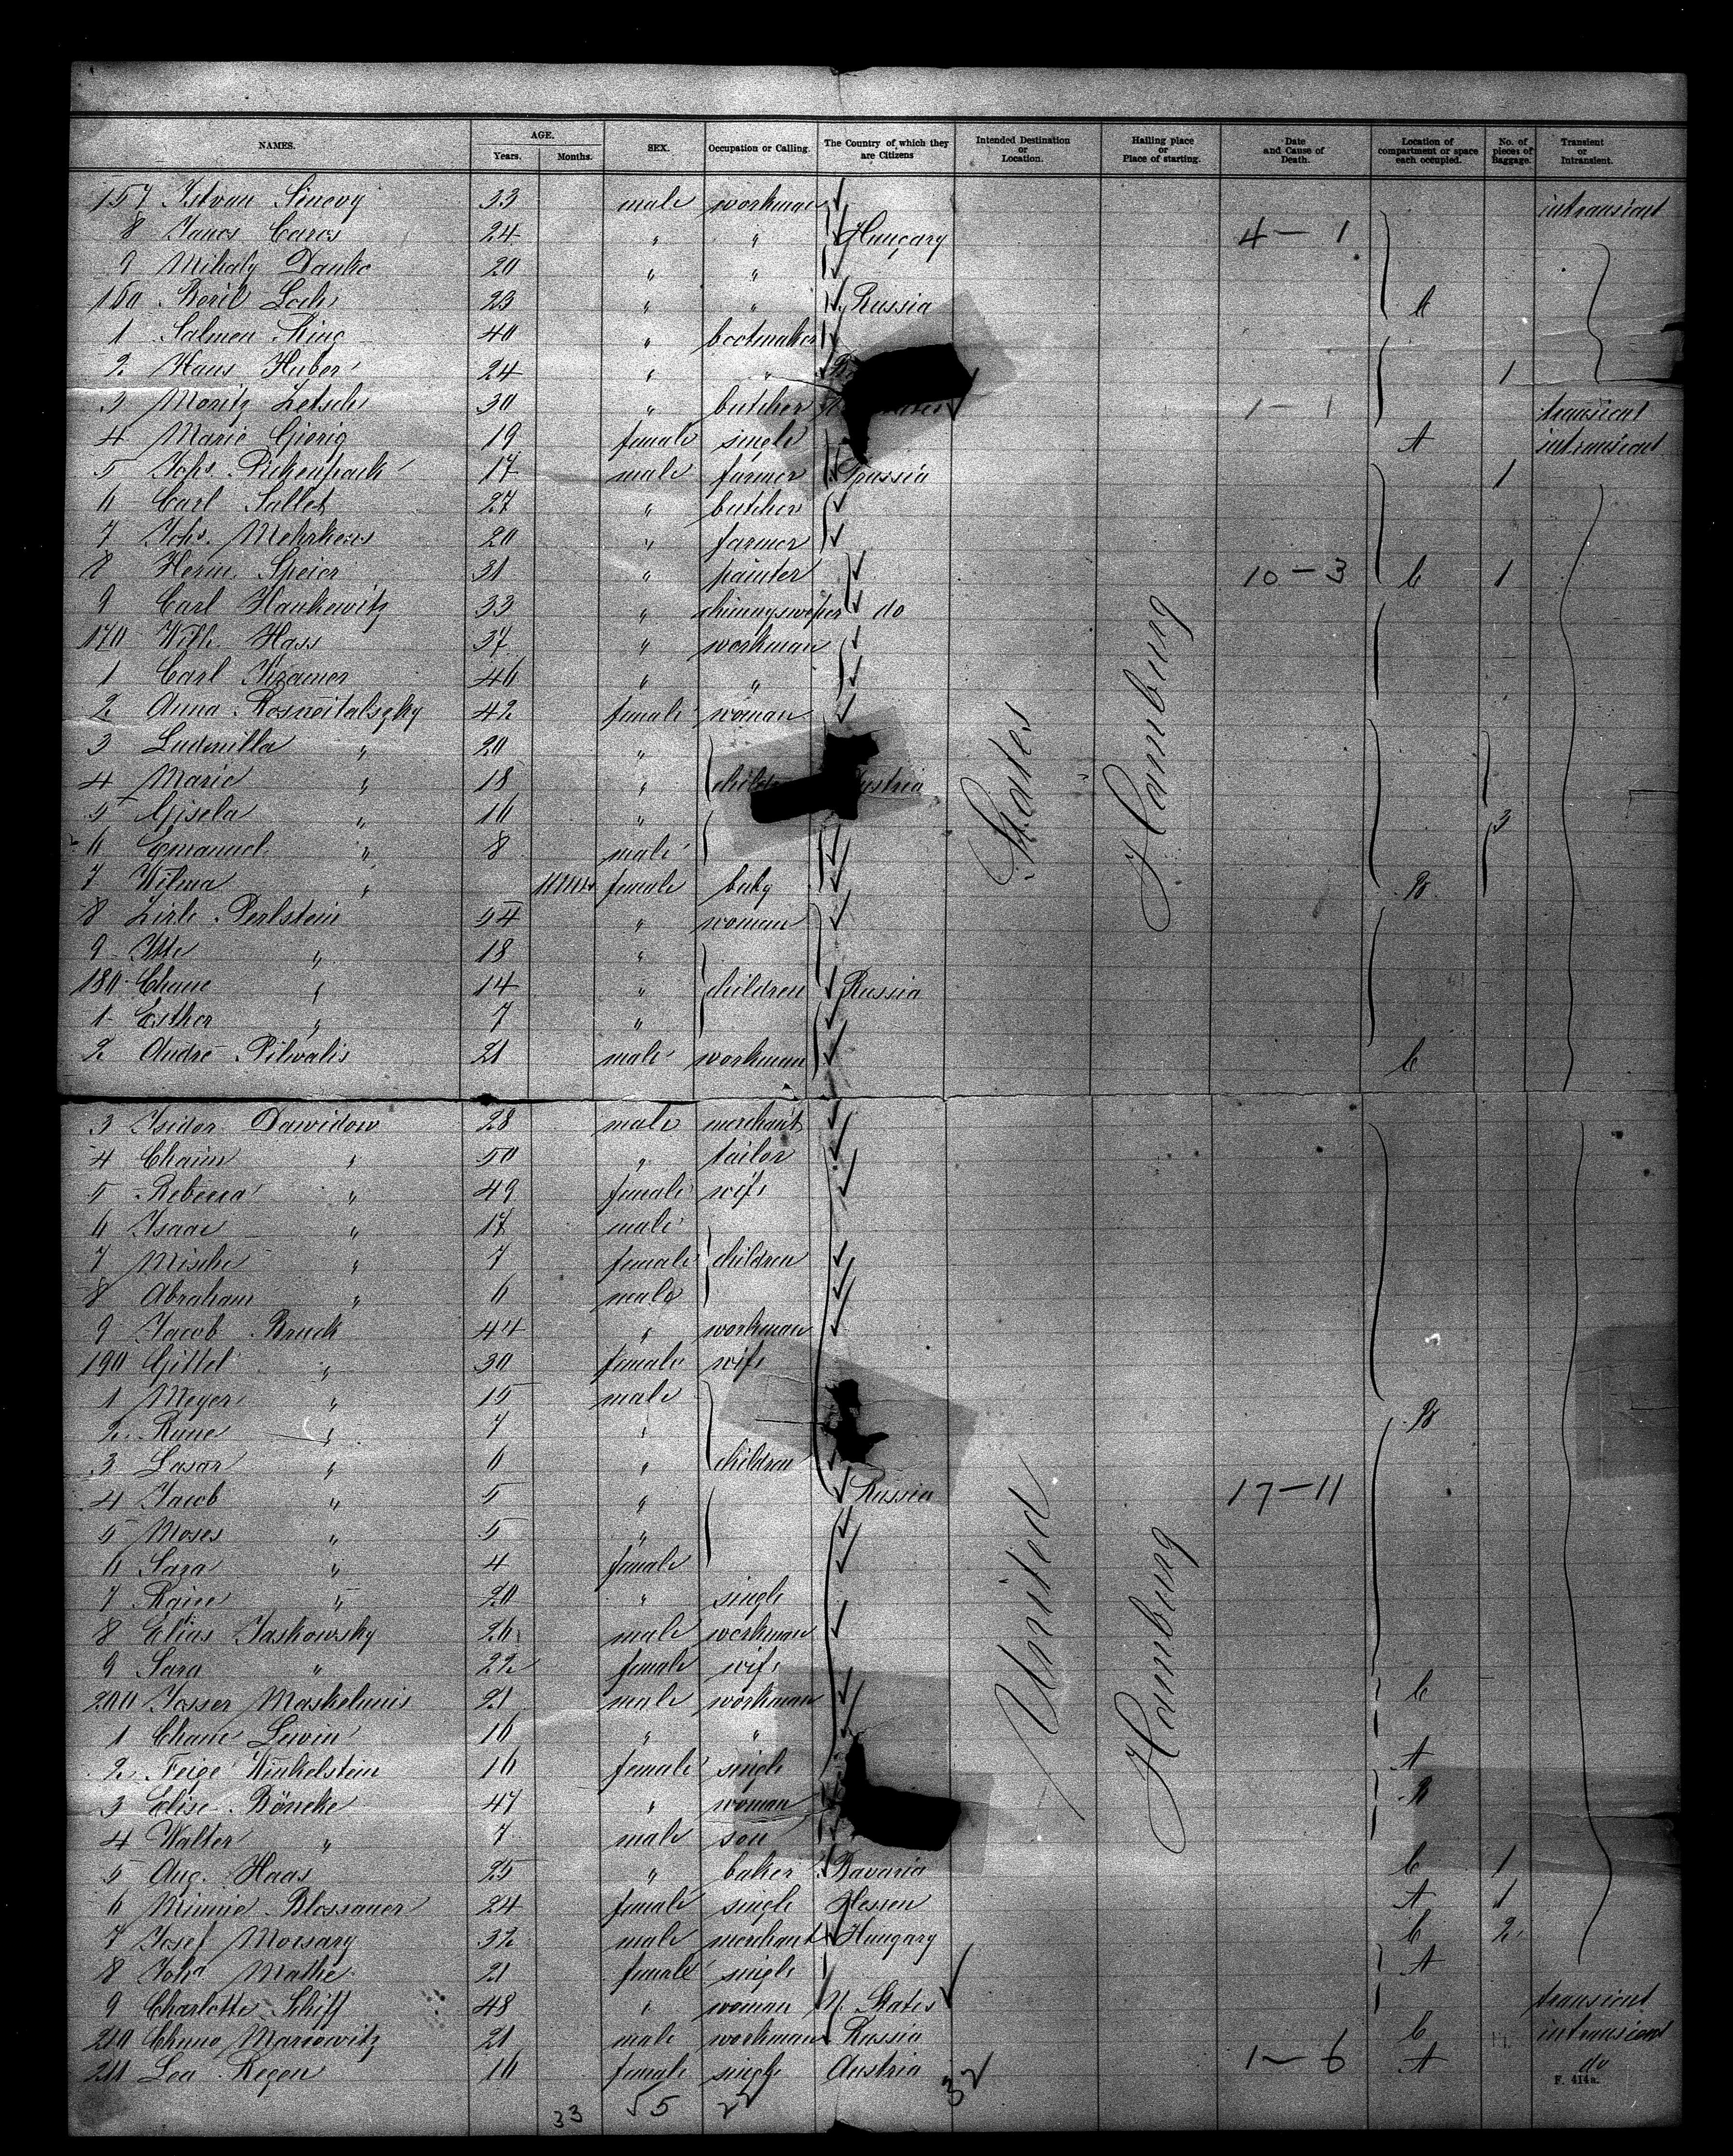 NAMES. AGE. Years. Months. SEX. Occupation or Calling. The Country of which they are Citizens Intended Destination or Location. Hailing place or Place of starting. Date and Cause of Death. Location of compartment or space each occupied. No. of pieces of Baggage. Transient or Intransient.
157 Istvan 33 male workman intransient
8 Janos 24 " " Hungary 4-1
9 Mihaly Danko 20 " "
160 23 " " Russia C
1 Salmen 40 " bootmaker
2 Hans Huber 24 " " 1
3 Moritz Letsch 30 " butcher 1-1 transient
4 Marie Gierig 19 female single A intransient
5 Johs. Pickenpack 17 male farmer Prussia 1
6 Carl Sallet 27 " butcher
7 Johs. Mehrkens 20 " farmer
8 Herm. Speier 31 " painter 10-3 C 1
9 Carl Hankewitz 33 " do
170 Wilh. Hass 37 " workman
1 Carl Kramer 46 " "
2 Anna 42 female woman
3 Ludmilla " 20 "
4 Marie " 18 " Austria
5 Gisela " 16 " 3
6 Emanuel " 8 male
7 Wilma " female baby B
8 Perlstein 54 " woman
9 Itte " 18 "
180 Chane " 14 " children Russia
1 Esther " 7 "
2 Andre Pilwalis 21 male workman C
3 Isidor Dawidow 28 male merchant
4 Chaim " 50 " tailor
5 Rebecca " 49 female wife
6 Isaac " 17 male
7 Mische " 7 female children
8 Abraham " 6 male
9 Jacob Bruck 44 " workman
190 Gittel " 30 female wife
1 Meyer " 15 male
2 Rune " 7 " B
3 Lasar " 6 " children
4 Jacob " 5 " Russia 17-11
5 Moses " 5 "
6 Sara " 4 female
7 " 20 " single
8 Elias Jaskowsky 26 male workman
9 Sara " 22 female wife
200 Maskelunis 21 male workman C
1 Chane Lewin 16 " "
2 Feige Winkelstein 16 female single A
3 Elise Böneke 47 " woman B
4 Walter " 7 male son
5 Aug. Haas 25 " baker Bavaria C 1
6 Minnie Blossauer 24 female single Hessen A 1
7 Josef 32 male merchant Hungary C 2
8 Mathe 21 female single A
9 Charlotte Schiff 48 " woman U. States transient
210 Marcowitz 21 male workman Russia C intransient
211 Lea Regen 16 female single Austria 1-6 A do
United States
Hamburg
Hamburg
33 55 22 32
F. 414a.